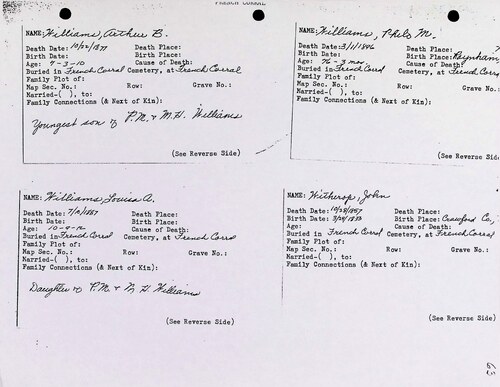 FRENCH CORRAL
NAME: Williams, Arthur B.
Death Date: 10/22/1877 Death Place:
Birth Date: Birth Place:
Age: 7-3-10 Cause of Death:
Buried in French Corral Cemetery, at French Corral
Family Plot of:
Map Sec. No.: Row: Grave No.:
Married-( ), to:
Family Connections (& Next of Kin):
Youngest son of P.M. & M.H. Williams
(See Reverse Side)
NAME: Williams, Philo M.
Death Date: 3/11/1896 Death Place:
Birth Date: Birth Place: Raynham,
Age: 76-3 mos Cause of Death:
Buried in French Corral Cemetery, at French Corra
Family Plot of:
Map Sec. No.: Row: Grave No.:
Married-( ), to:
Family Connections (& Next of Kin):
(See Reverse Side
NAME: Williams, Louisa A.
Death Date: Death Place:
Birth Date: Birth Place:
Age: Cause of Death:
Buried in French Corral Cemetery, at French Corral
Family Plot of:
Map Sec. No.: Row: Grave No.:
Married-( ), to:
Family Connections (& Next of Kin):
Daughter of P.M. & M.H. Williams
(See Reverse Side)
NAME: Witherop, John
Death Date: Death Place:
Birth Date: Birth Place: Crawford Co,
Age: Cause of Death:
Buried in French Corral Cemetery, at French Corral
Family Plot of:
Map Sec. No.: Row: Grave No.:
Married-( ), to:
Family Connections (& Next of Kin):
(See Reverse Side)